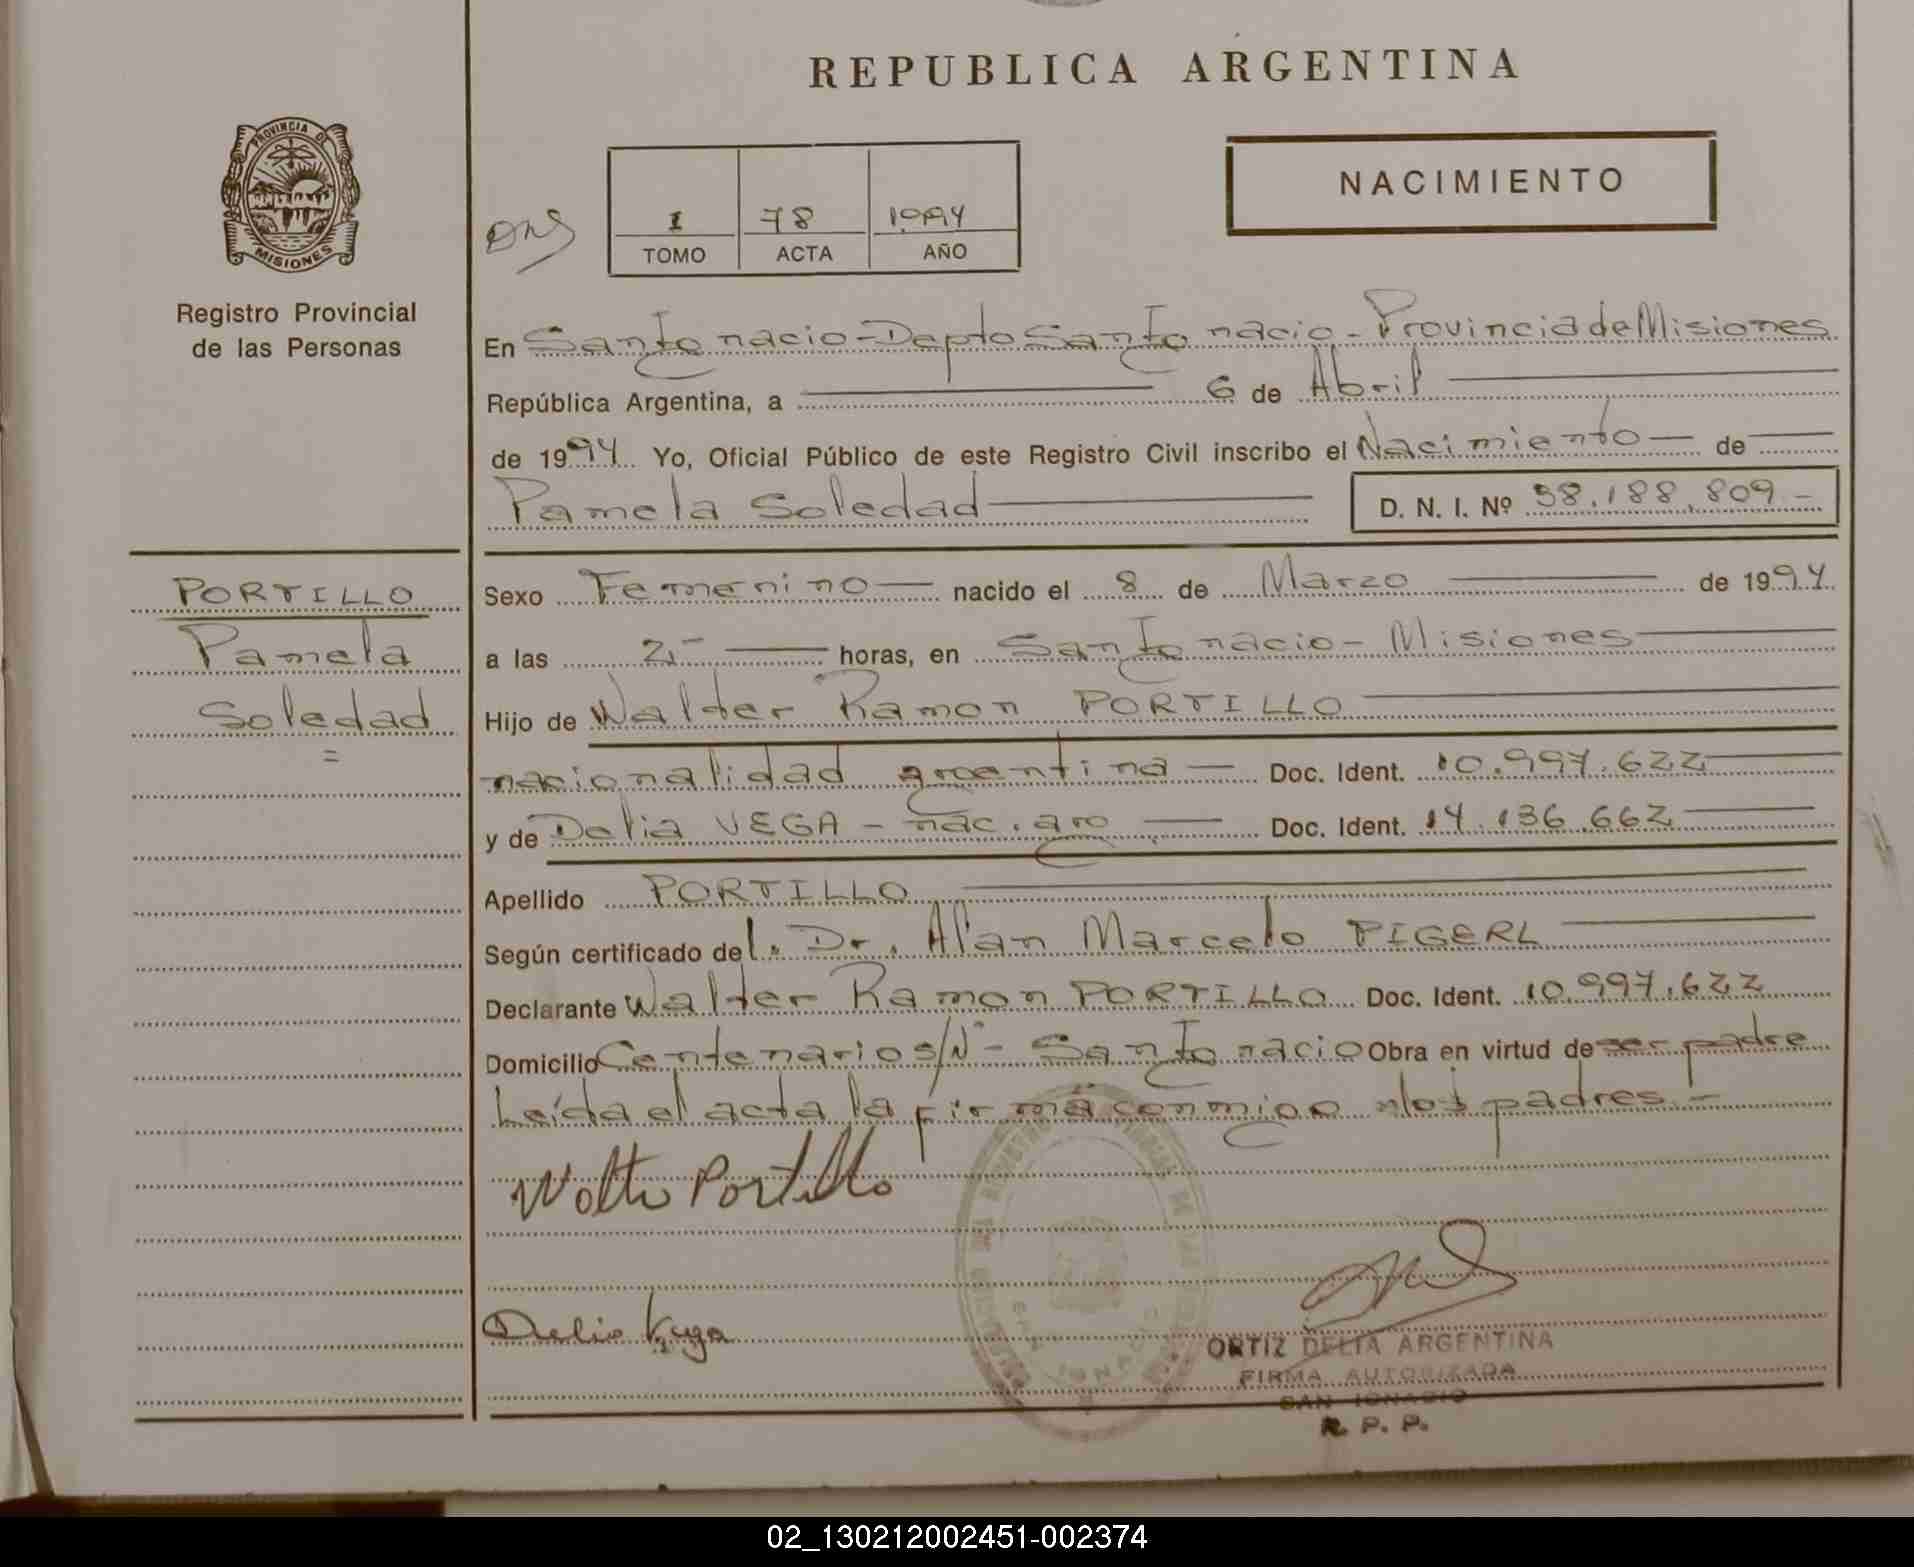 REPUBLICA ARGENTINA
PROVINCIA DE
MISIONES
Registro Provincial
de las Personas
NACIMIENTO
I 78 1994
TOMO ACTA AÑO
En San Ignacio - Depto San Ignacio - Provincia de Misiones
República Argentina, a 6 de Abril
de 1994 Yo, Oficial Público de este Registro Civil inscribo el Nacimiento de
Pamela Soledad D. N. I. Nº 38.188.809.-
PORTILLO
Pamela
Soledad
=
Sexo Femenino nacido el 8 de Marzo de 1994
a las horas, en San Ignacio - Misiones
Hijo de Walter Ramon PORTILLO
nacionalidad argentina Doc. Ident. 10.997.622
y de Delia VEGA - nac. arg Doc. Ident. 14.136.662
Apellido PORTILLO
Según certificado del. Dr. Alan Marcelo PIGERL
Declarante Walter Ramon PORTILLO Doc. Ident. 10.997.622
Domicilio Centenario s/Nº - San Ignacio Obra en virtud de ser padre
Leída el acta la firma conmigo los padres.-
Walter Portillo
Delia Vega
SAN IGNACIO
ORTIZ DELIA ARGENTINA
FIRMA AUTORIZADA
SAN IGNACIO
R. P. P.
02_130212002451-002374